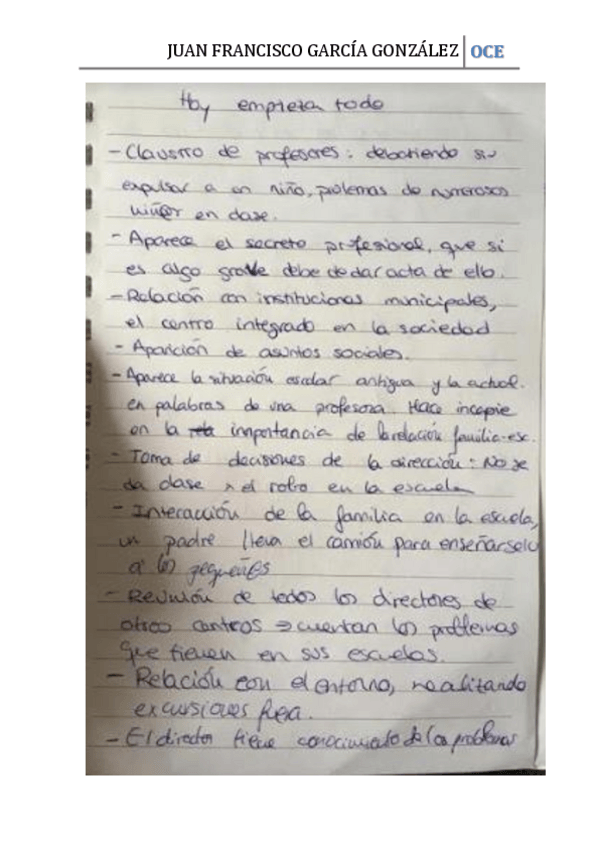 JUAN FRANCISCO GARCÍA GONZÁLEZ OCE
Hoy empieza todo
- Claustro de profesores: debatiendo si
expulsar a un niño, prolemas de numerosos
niños en clase.
- Aparece el secreto profesional, que si
es algo grave debe de dar acta de ello.
- Relación con instituciones municipales,
el centro integrado en la sociedad
- Aparición de asuntos sociales.
- Aparece la situación escolar antigua y la actual.
en palabras de una profesora. Hace incapie
en la importancia de la relación familia-esc.
- Toma de decisiones de la dirección: No se
da clase x el robo en la escuela
- Interacción de la familia en la escuela,
un padre lleva el camión para enseñarselo
a los pequeños
- Reunión de todos los directores de
otros centros => cuentan los problemas
que tienen en sus escuelas.
- Relación con el entorno, realitando
excursiones
- El director tiene conocimiento de los problemas